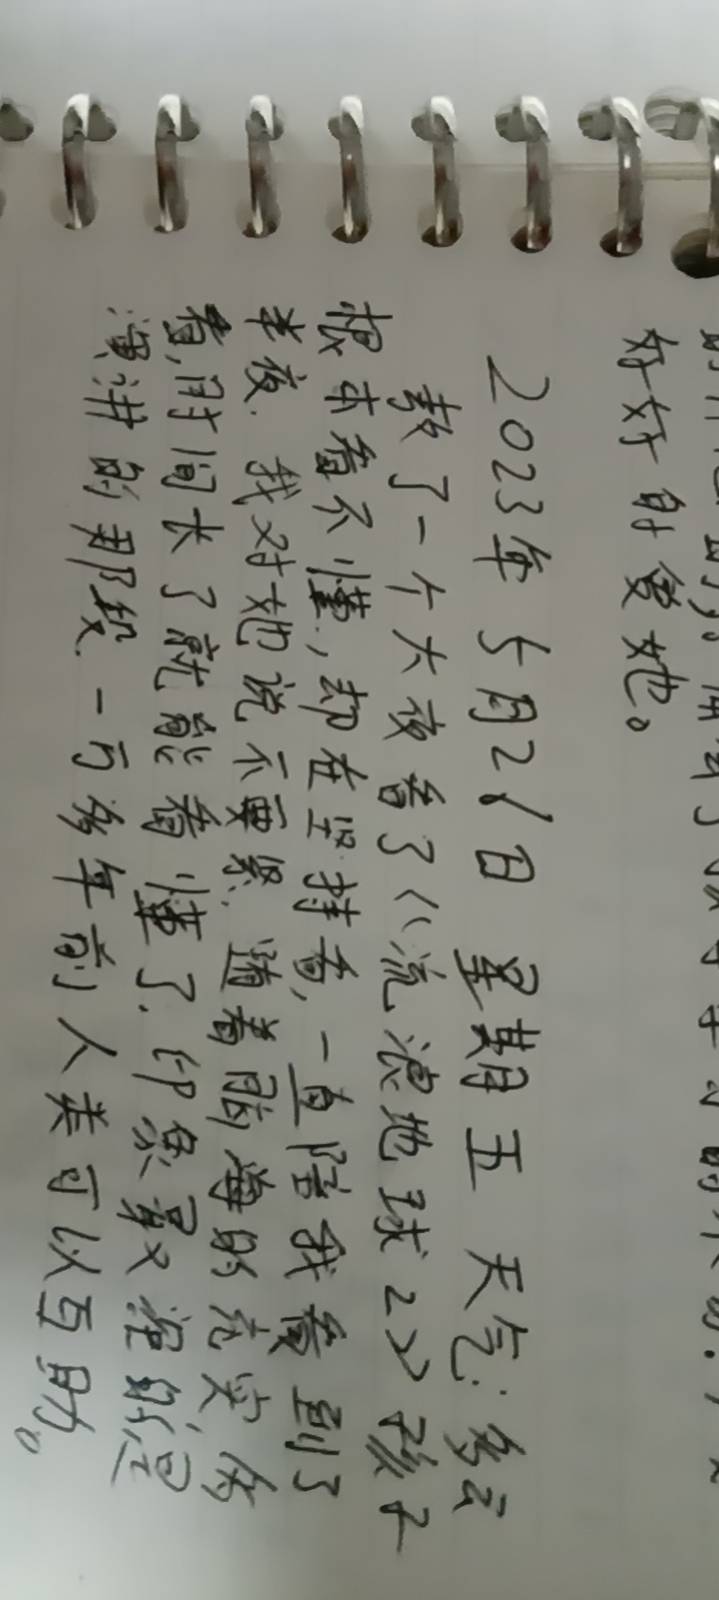 好好的爱她。
2023年5月26日 星期五 天气:多云
熬了一个大夜看了《流浪地球2》孩子
根本看不懂,却在坚持看,一直陪我看到了
半夜.我对她说不要紧.随着脑海的充实多
看,时间长了就能看懂了.印象最深的是
演讲的那段.一万多年前人类可以互助。